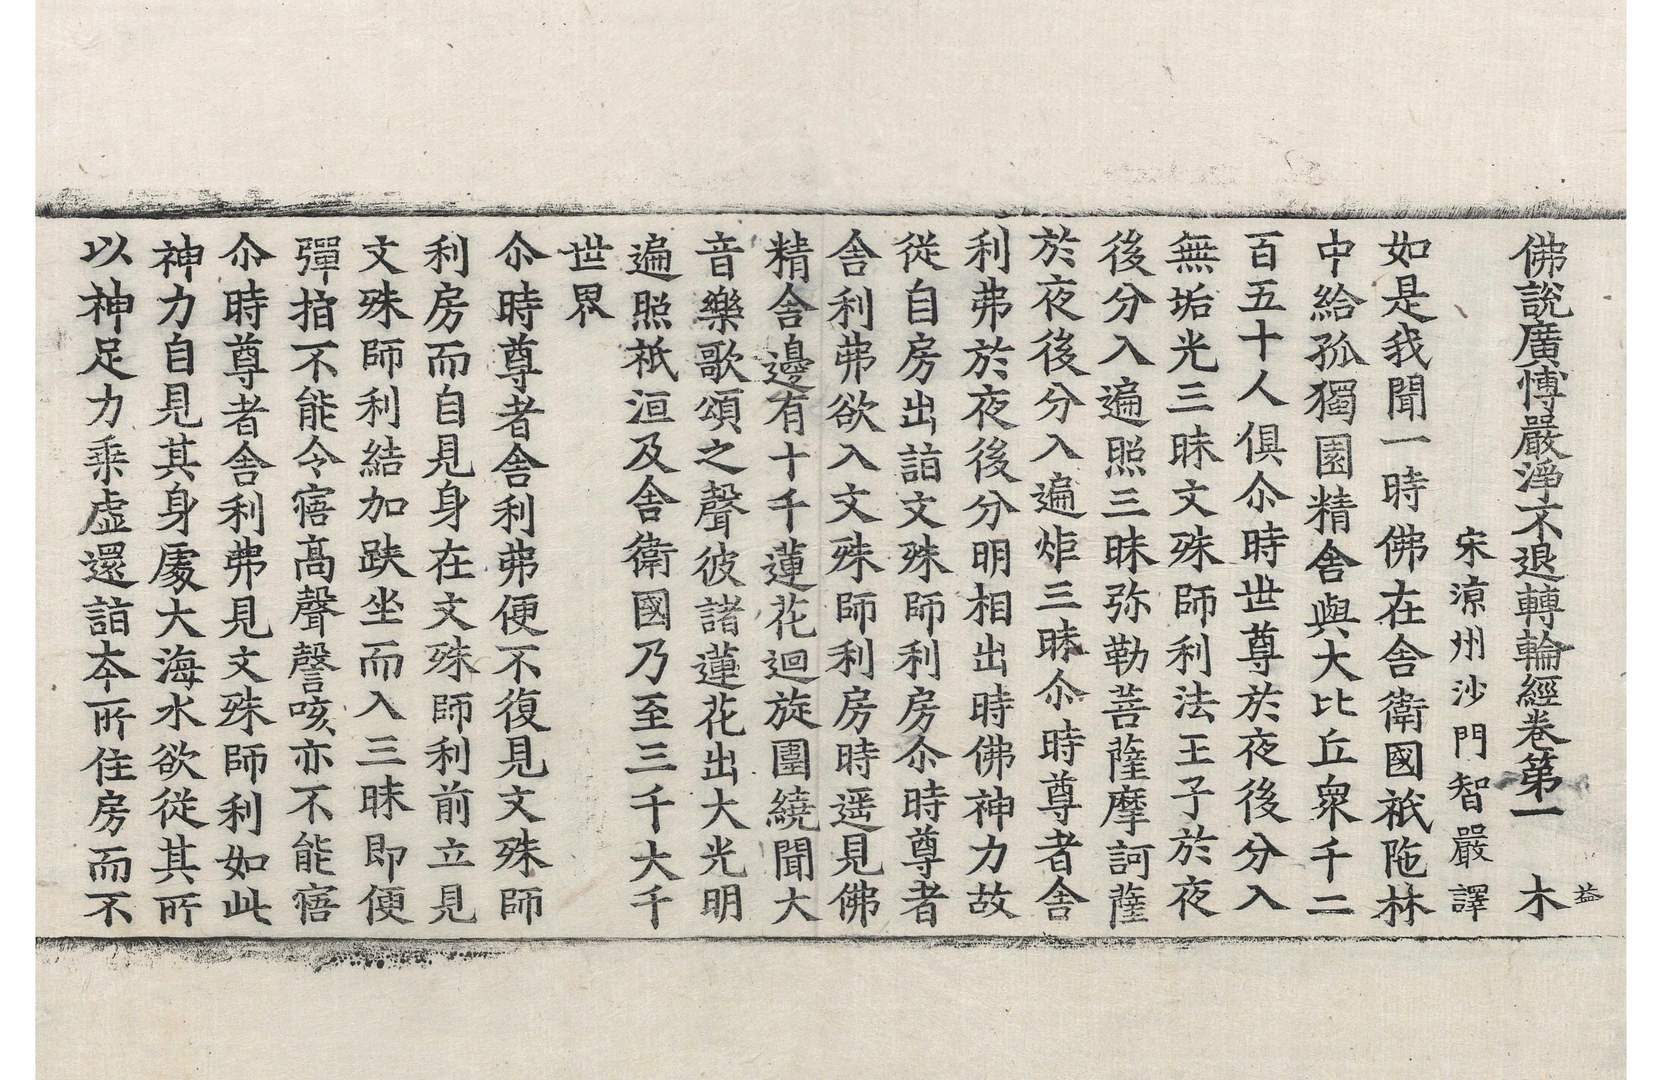 佛說廣愽嚴淨不退轉輪經卷第一 木
益
宋涼州沙門智嚴譯
如是我聞一時佛在舍衛國祇陁林
中給孤獨園精舍與大比丘衆千二
百五十人俱尒時世尊於夜後分入
無垢光三昧文殊師利法王子於夜
後分入遍照三昧弥勒菩薩摩訶薩
於夜後分入遍炬三昧尒時尊者舍
利弗於夜後分明相出時佛神力故
從自房出詣文殊師利房尒時尊者
舍利弗欲入文殊師利房時遥見佛
精舍邊有十千蓮花迴旋圍繞聞大
音樂歌頌之聲彼諸蓮花出大光明
遍照祇洹及舍衛國乃至三千大千
世界
尒時尊者舍利弗便不復見文殊師
利房而自見身在文殊師利前立見
文殊師利結加趺坐而入三昧即便
彈指不能令寤高聲謦咳亦不能寤
尒時尊者舍利弗見文殊師利如此
神力自見其身處大海水欲從其所
以神足力乗虛還詣本所住房而不